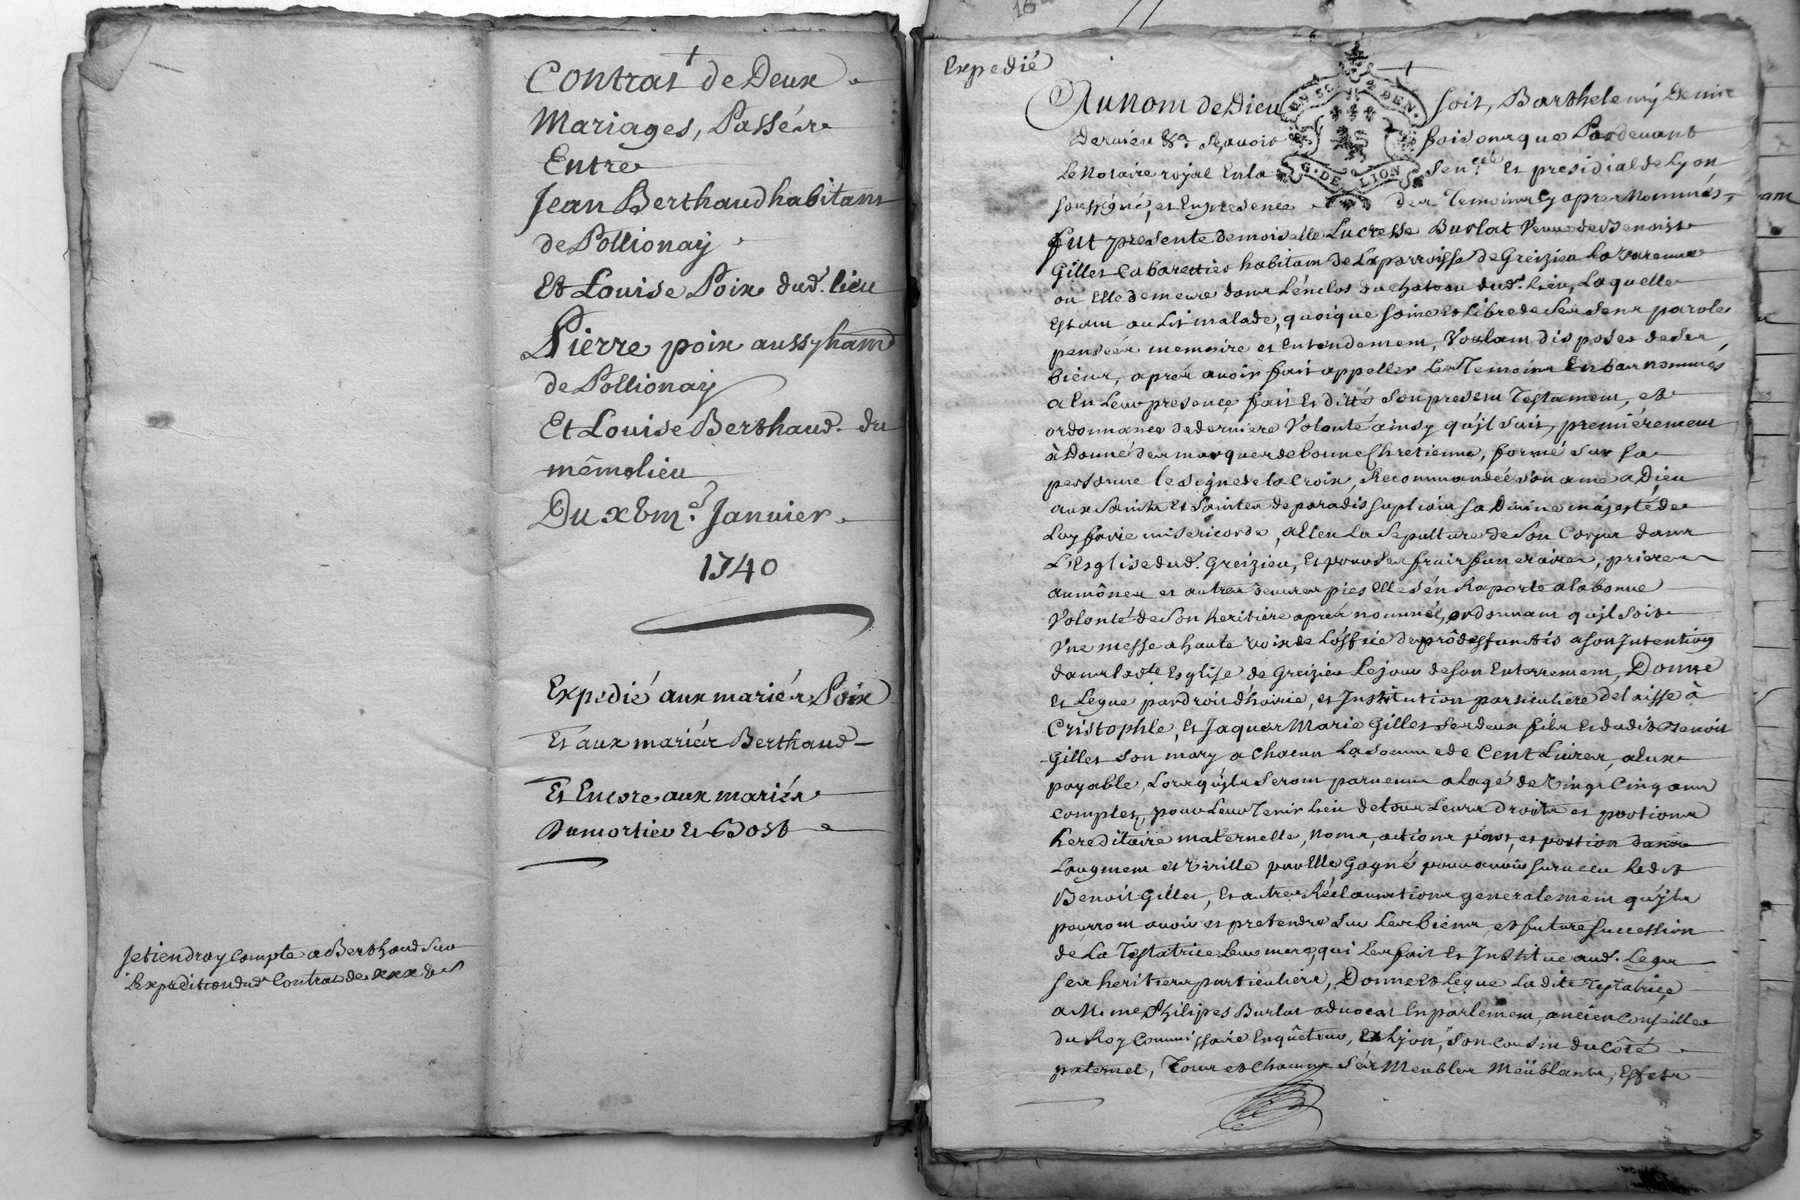 Contrat de Deux
Mariages, Passés
Entre
Jean Berthaud habitant
de Pollionay
Et Louise Poix dud. lieu
Pierre poix aussy habitant
de Pollionay
Et Louise Berthaud du
même lieu
Du xvme. Janvier
1740
Expedié aux mariés Poix
Et aux mariés Berthaud
Et Encore aux mariés
Dumortier et Bost
Jetiendray compte a Berthaud sur
L'expedition dud Contrat de xxx s
Expedié
GEN. DE LION
Au nom de Dieu soit, Barthelemy Denis
Dervieu &a Sçavoir faisons que Pardevant
Le Notaire royal En la Senee. Et presidial de Lyon
soussigné, et En presence des Temoins Cy apres Nommés,
fut presente demoiselle Lucresse Burlat Veuve de Benoist
Gilles Cabarettier habitant de La parroisse de Greizieu La Varenne
ou Elle demeure dans L'énclos du chateau dud. lieu, Laquelle
Estant au Lit malade, quoique saine et Libre de ses sens parole
pensées memoire et Entendement, Voulant disposer de ses
biens, aprés avoir fait appeller Les Temoins En bas nommés
a En Leur presence fait Et ditté son present Testament, et
ordonnance de derniere Volonté ainsy qu'il suit, premiérement
à Donné des marques de bonne Chretienne, formé sur sa
personne le signe de la Croix, Recommandée son ame a Dieu
aux Saints Et Saintes de paradis supliant sa Divine májesté de
Luy faire misericorde, a Elleu La Sepulture de Son Corps dans
L'Esglise dud. Greizieu, Et pour ses frais funeraires, prieres
aumônes et autres œuvres pies Elle s'én Raporte a la bonne
Volonté de Son heritiere aprés nommée, ordonnant qu'il soit
Une messe a haute voix de L'office de prô deffunctis a son Intention
dans ladte Esglise de Greizieu Le jour de Son Enterrement, Donne
Et Legue par droit d'hoirie, et Institution particuliere delaisse à
Cristophle, Et Jaques Marie Gilles ses deux fils Et dudit Benoit
Gilles son mary a chacun La somme de Cent Livres, a eux
payable, Lorsqu'ils seront parvenus a L'agé de Vingt Cinq ans
complets, pour Leur Tenir Lieu de tous Leurs Droits et portions
hereditaire maternelle, Noms, actions, parts et portion dans
Laugment et Virille par Elle Gagné pour avoir survecu Ledit
Benoit Gilles, Et autres Réclamations generalement qu'ils
pourront avoir et pretendre sur Les biens et future succession
de La Testatrice Leur mere, qui Les fait Et Institue aud. Legs
ses heritiers particuliers, Donne Et Legue Ladite Testatrice
a Me Philipes Burlat advocat En parlement, ancien Conseiller
du Roy Commissaire Enquêteur, à Lyon, son cousin du Côté
paternel, Tous et Chacuns Sés Meubles Meüblants, Effets